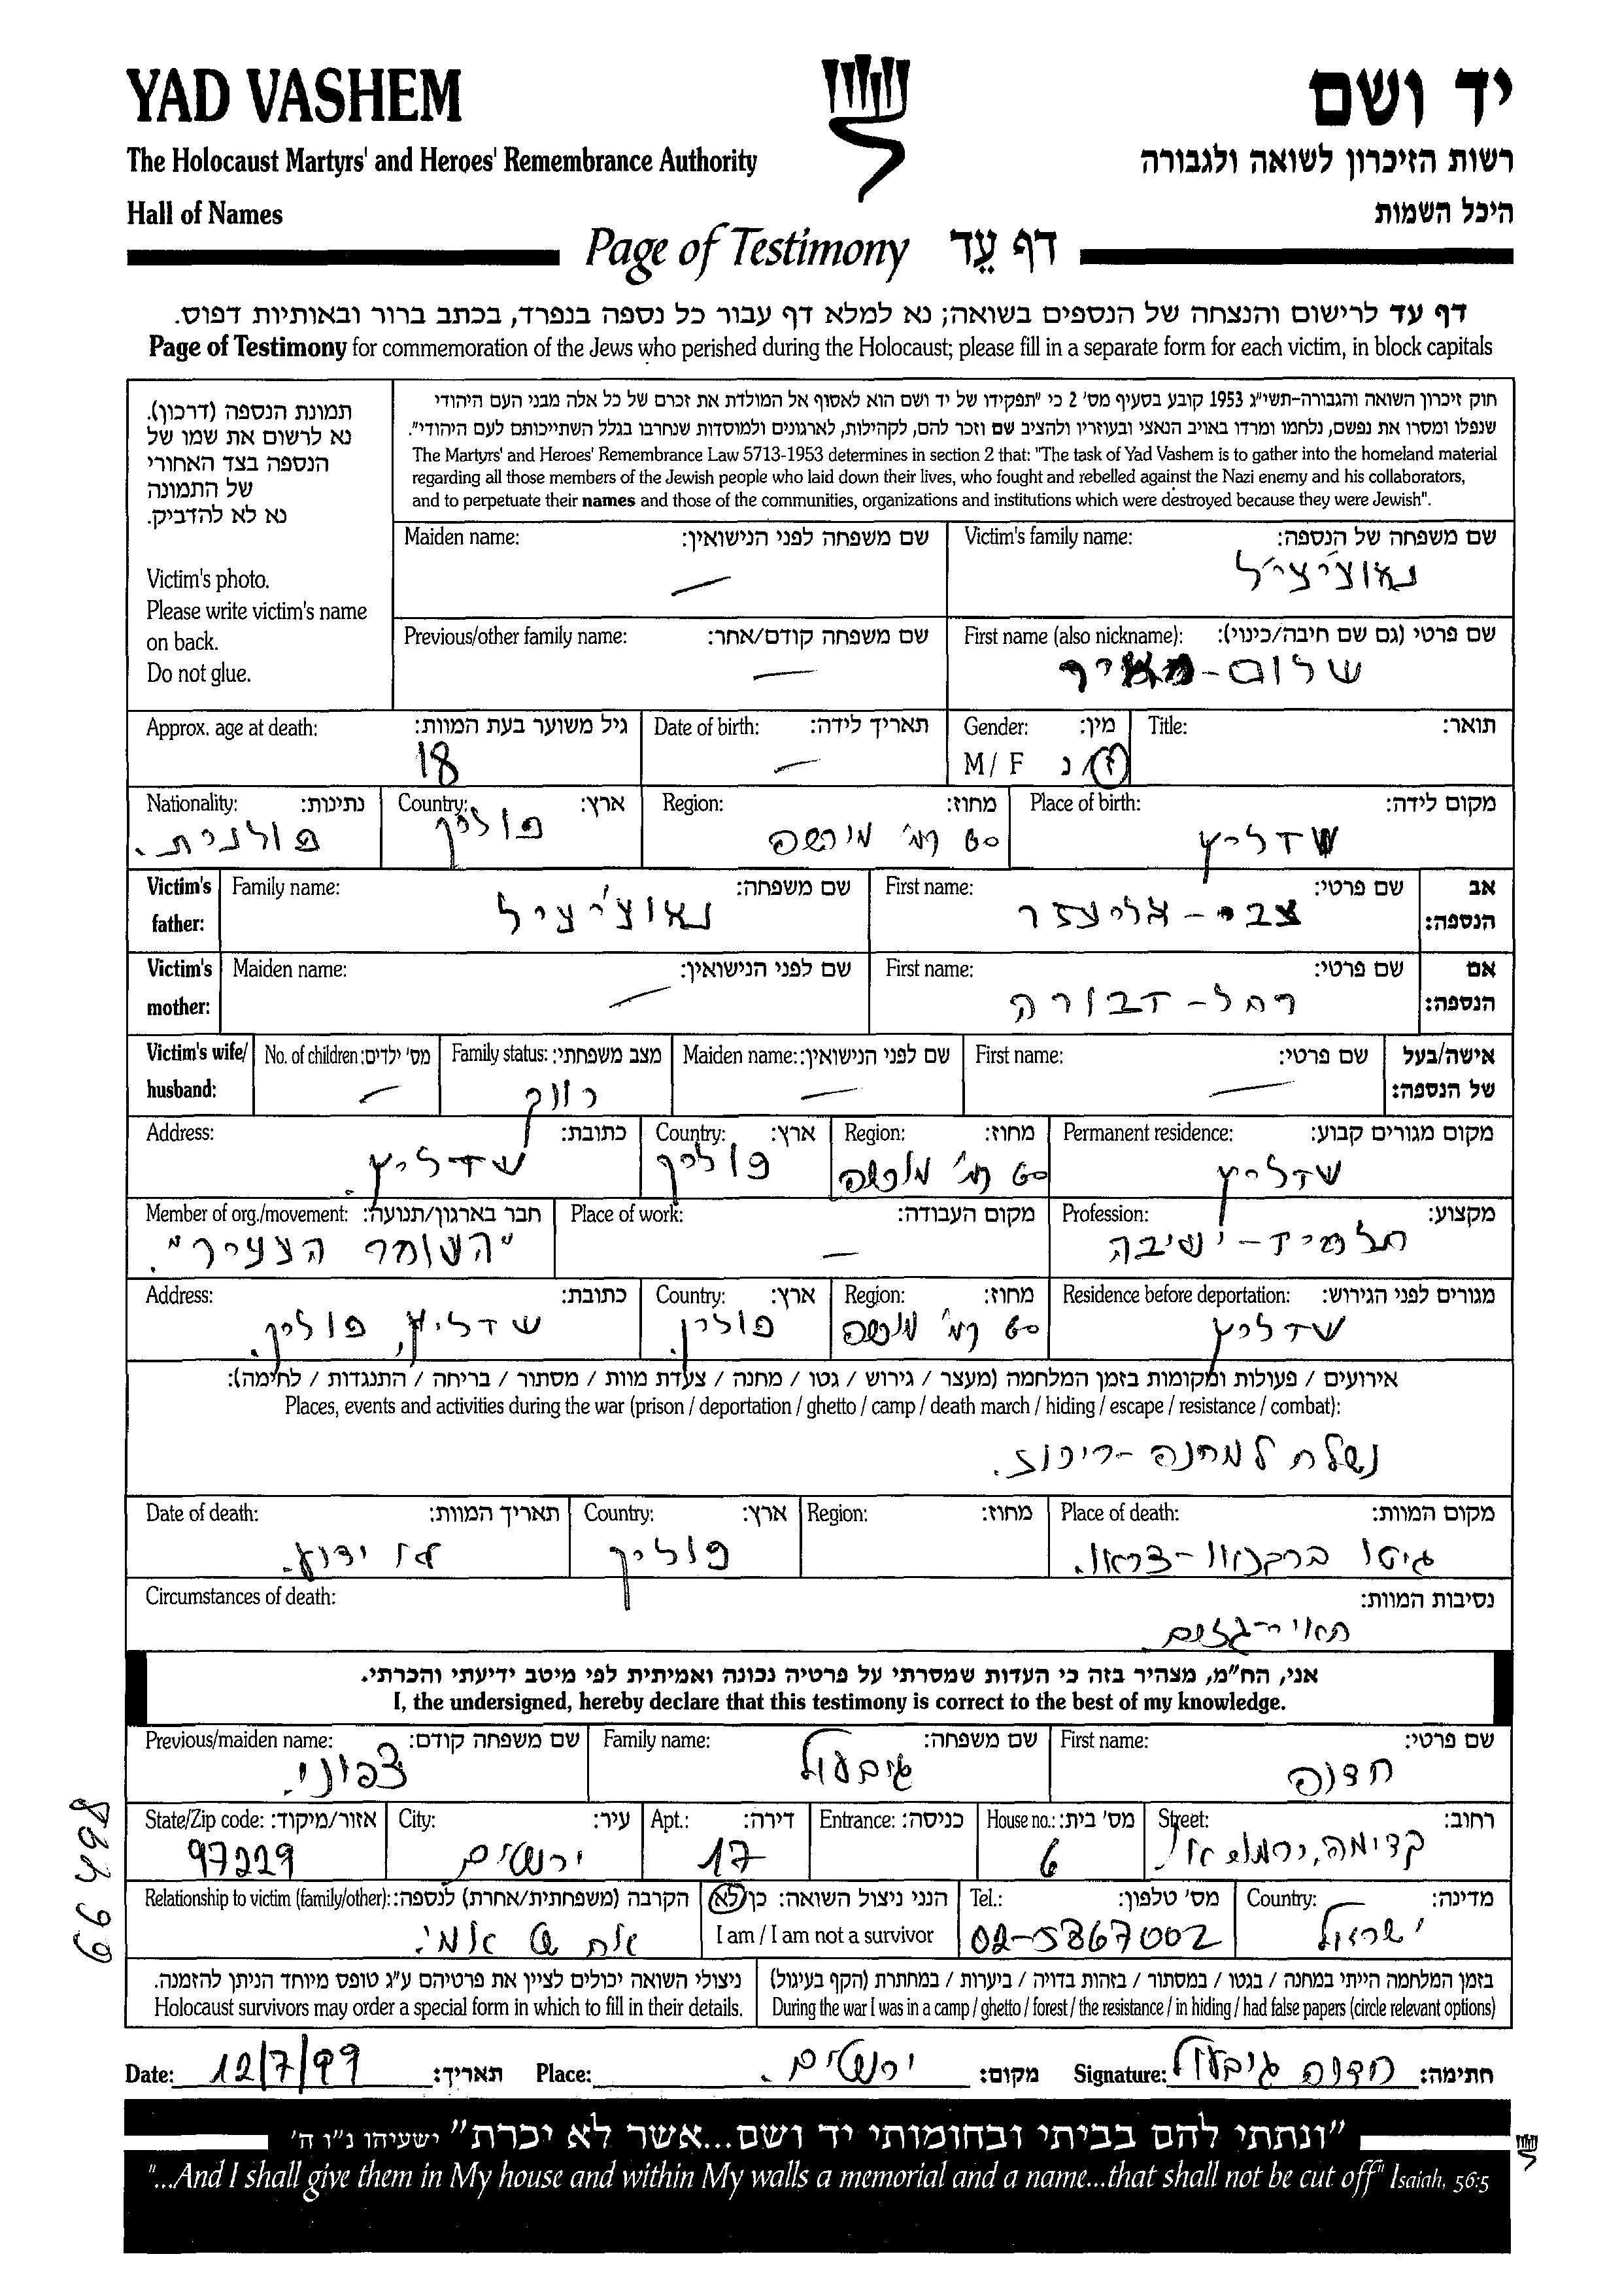 YAD VASHEM
יד ושם
The Holocaust Martyrs' and Heroes' Remembrance Authority
רשות הזיכרון לשואה ולגבורה
Hall of Names
היכל השמות
Page of Testimony דף עֵד
דף עד לרישום והנצחה של הנספים בשואה; נא למלא דף עבור כל נספה בנפרד, בכתב ברור ובאותיות דפוס.
Page of Testimony for commemoration of the Jews who perished during the Holocaust; please fill in a separate form for each victim, in block capitals
חוק זיכרון השואה והגבורה-תשי"ג 1953 קובע בסעיף מס' 2 כי "תפקידו של יד ושם הוא לאסוף אל המולדת את זכרם של כל אלה מבני העם היהודי
שנפלו ומסרו את נפשם, נלחמו ומרדו באויב הנאצי ובעוזריו ולהציב שם וזכר להם, לקהילות, לארגונים ולמוסדות שנחרבו בגלל השתייכותם לעם היהודי".
The Martyrs' and Heroes' Remembrance Law 5713-1953 determines in section 2 that: "The task of Yad Vashem is to gather into the homeland material
regarding all those members of the Jewish people who laid down their lives, who fought and rebelled against the Nazi enemy and his collaborators,
and to perpetuate their names and those of the communities, organizations and institutions which were destroyed because they were Jewish".
תמונת הנספה (דרכון).
נא לרשום את שמו של
הנספה בצד האחורי
של התמונה
נא לא להדביק.
Victim's photo.
Please write victim's name
on back.
Do not glue.
Victim's family name: שם משפחה של הנספה:
נאוצ'יציל
Maiden name: שם משפחה לפני הנישואין:
—
First name (also nickname): שם פרטי (גם שם חיבה/כינוי):
שלום-מאיר
Previous/other family name: שם משפחה קודם/אחר:
—
Title: תואר:
Gender: מין:
M/ F ז/נ
Date of birth: תאריך לידה:
—
Approx. age at death: גיל משוער בעת המוות:
18
Place of birth: מקום לידה:
שדליץ
Region: מחוז:
60 קמ' מורשה
Country: ארץ:
פולין
Nationality: נתינות:
פולנית.
Victim's father: אב הנספה:
First name: שם פרטי:
צבי-אליעזר
Family name: שם משפחה:
נאוצ'יציל
Victim's mother: אם הנספה:
First name: שם פרטי:
רחל-דבורה
Maiden name: שם לפני הנישואין:
—
Victim's wife/ husband: אישה/בעל של הנספה:
First name: שם פרטי:
—
Maiden name: שם לפני הנישואין:
—
Family status: מצב משפחתי:
רווק
No. of children: מס' ילדים:
—
Permanent residence: מקום מגורים קבוע:
שדליץ
Region: מחוז:
60 קמ' מורשה
Country: ארץ:
פולין
Address: כתובת:
שדליץ.
Profession: מקצוע:
תלמיד-ישיבה
Place of work: מקום העבודה:
—
Member of org./movement: חבר בארגון/תנועה:
"השומר הצעיר".
Residence before deportation: מגורים לפני הגירוש:
שדליץ
Region: מחוז:
60 קמ' מורשה
Country: ארץ:
פולין.
Address: כתובת:
שדליץ, פולין.
אירועים / פעולות ומקומות בזמן המלחמה (מעצר / גירוש / גטו / מחנה / צעדת מוות / מסתור / בריחה / התנגדות / לחימה):
Places, events and activities during the war (prison / deportation / ghetto / camp / death march / hiding / escape / resistance / combat):
נשלח למחנה-ריכוז.
Place of death: מקום המוות:
גיטו
Region: מחוז:
Country: ארץ:
פולין
Date of death: תאריך המוות:
לא ידוע.
Circumstances of death: נסיבות המוות:
תאי-הגזים
אני, הח"מ, מצהיר בזה כי העדות שמסרתי על פרטיה נכונה ואמיתית לפי מיטב ידיעתי והכרתי.
I, the undersigned, hereby declare that this testimony is correct to the best of my knowledge.
First name: שם פרטי:
חדוה
Family name: שם משפחה:
גיבעול
Previous/maiden name: שם משפחה קודם:
צפוני.
Street: רחוב:
קדימה,
House no.: מס' בית:
6
Entrance: כניסה:
Apt.: דירה:
17
City: עיר:
ירושלים
State/Zip code: אזור/מיקוד:
97229
Country: מדינה:
ישראל
Tel.: מס' טלפון:
02-5867002
הנני ניצול השואה: כן/לא
I am / I am not a survivor
Relationship to victim (family/other): הקרבה (משפחתית/אחרת) לנספה:
אח של אמי.
בזמן המלחמה הייתי במחנה / בגטו / במסתור / בזהות בדויה / ביערות / במחתרת (הקף בעיגול)
During the war I was in a camp / ghetto / forest / the resistance / in hiding / had false papers (circle relevant options)
ניצולי השואה יכולים לציין את פרטיהם ע"ג טופס מיוחד הניתן להזמנה.
Holocaust survivors may order a special form in which to fill in their details.
Date: 12/7/99 תאריך: Place: ירושלים. מקום: Signature: חדוה גיבעול חתימה:
"ונתתי להם בביתי ובחומותי יד ושם...אשר לא יכרת" ישעיהו נ"ו ה'
"...And I shall give them in My house and within My walls a memorial and a name...that shall not be cut off" Isaiah, 56:5